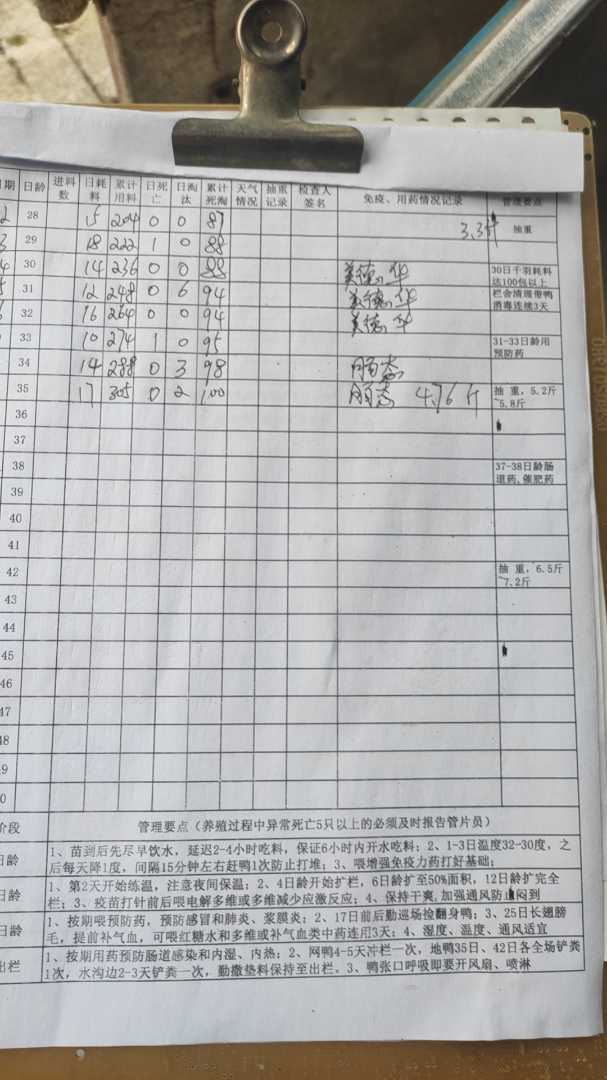 期 日龄 进料数 日耗料 累计用料 日死亡 日淘汰 累计死淘 天气情况 抽重记录 检查人签名 免疫、用药情况记录 管理要点
28 15 204 0 0 87 3.3斤 抽重
29 18 222 1 0 88
30 14 236 0 0 88 30日千羽耗料达100包以上
31 12 248 0 6 94 栏舍清理带鸭消毒连续3天
32 16 264 0 0 94
33 10 274 1 0 95 31-33日龄用预防药
34 14 288 0 3 98 肠态
35 17 305 0 2 100 肠态 4.76斤 抽重，5.2斤~5.8斤
36
37
38 37-38日龄肠道药、催肥药
39
40
41
42 抽重，6.5斤~7.2斤
43
44
45
46
47
48
9
0
阶段 管理要点（养殖过程中异常死亡5只以上的必须及时报告管片员）
日龄 1、苗到后先尽早饮水，延迟2-4小时吃料，保证6小时内开水吃料；2、1-3日温度32-30度，之
后每天降1度，间隔15分钟左右赶鸭1次防止打堆；3、喂增强免疫力药打好基础；
日龄 1、第2天开始练温，注意夜间保温；2、4日龄开始扩栏，6日龄扩至50%面积，12日龄扩完全
栏；3、疫苗打针前后喂电解多维或多维减少应激反应；4、保持干爽，加强通风防止闷到
日龄 1、按期喂预防药，预防感冒和肺炎、浆膜炎；2、17日前后勤巡场捡翻身鸭；3、25日长翅膀
毛，提前补气血，可喂红糖水和多维或补气血类中药连用3天；4、湿度、温度、通风适宜
出栏 1、按期用药预防肠道感染和内湿、内热；2、网鸭4-5天冲栏一次，地鸭35日、42日各全场铲粪
1次，水沟边2-3天铲粪一次，勤撒垫料保持至出栏。3、鸭张口呼吸即要开风扇、喷淋